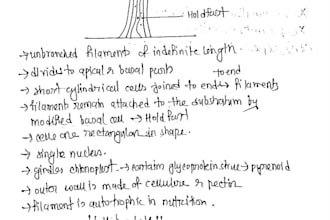 Holdfast
→ unbranched filaments of indefinite length.
→ divides to apical & basal parts
to end
→ short cylindrical cells joined to end → filaments
→ filament remain attached to the substratum by
modified basal cell → Hold fast
→ cells are rectangular in shape.
→ single nucleus.
→ girdles chloroplast → contain glycoprotein struc → pyrenoid
→ outer wall is made of cellulose & pectin
→ filament is autotrophic in nutrition.